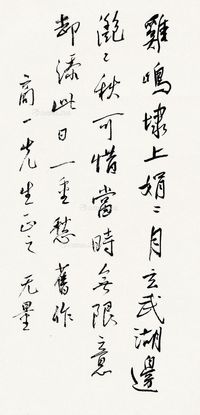 雞鳴埭上娟〻月玄武湖邊
灔〻秋可惜當時無限意
却添此日一重愁 舊作
商一先生正之 无量